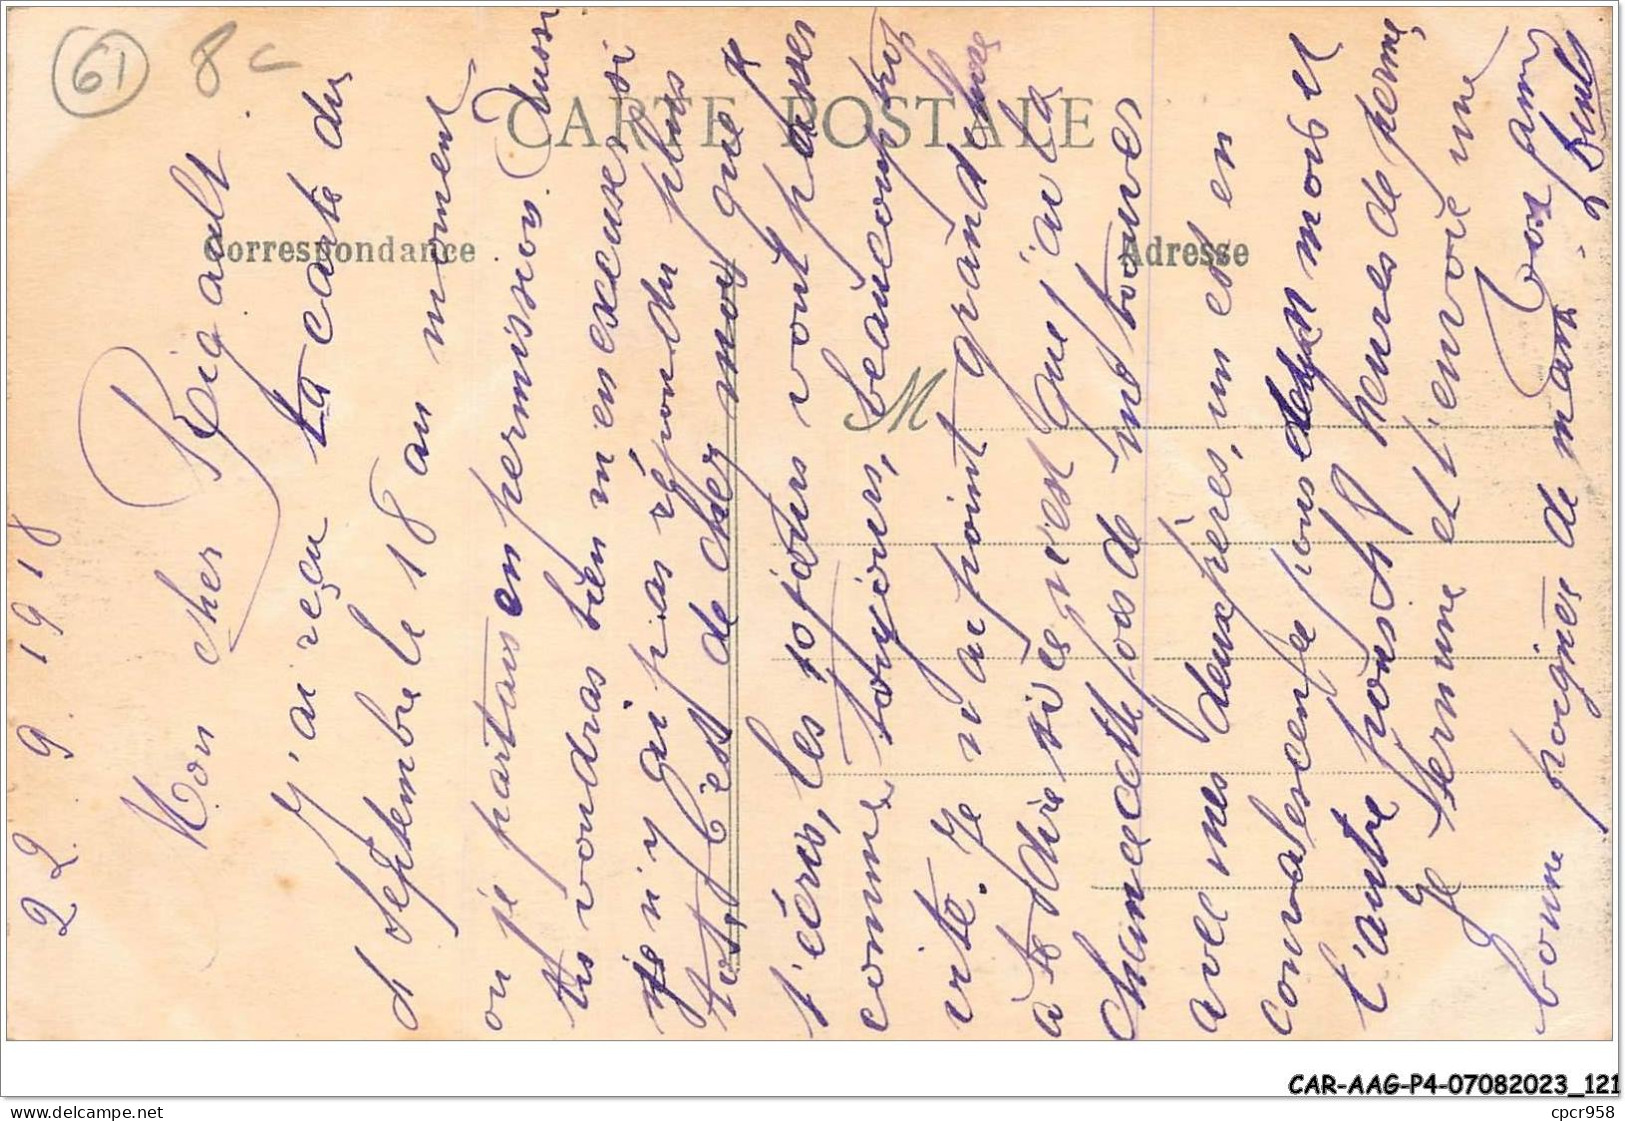 61
8c
CARTE POSTALE
Correspondance
Adresse
M
22 9 1918
Mon cher Rigault
J'ai reçu ta carte du
d septembre le 18 au moment
ou je partais en permission. Aussi
tu voudras bien m'en excuser si
je n'y ai pas répondu plus
tot. C'est de chez moi que je
t'écris, les 10 jours vont passer
comme toujours, beaucoup trop
vite. Je n'ai point grand chose
à te dire si ce n'est que j'ai la
chance cette fois de me trouver
avec mes deux frères, un est en
convalescence pour deux mois et
l'autre pour 48 heures de perme,
Je termine et t'envoie une
bonne poignée de main. Ton ami
CAR-AAG-P4-07082023_121
www.delcampe.net
cpcr958